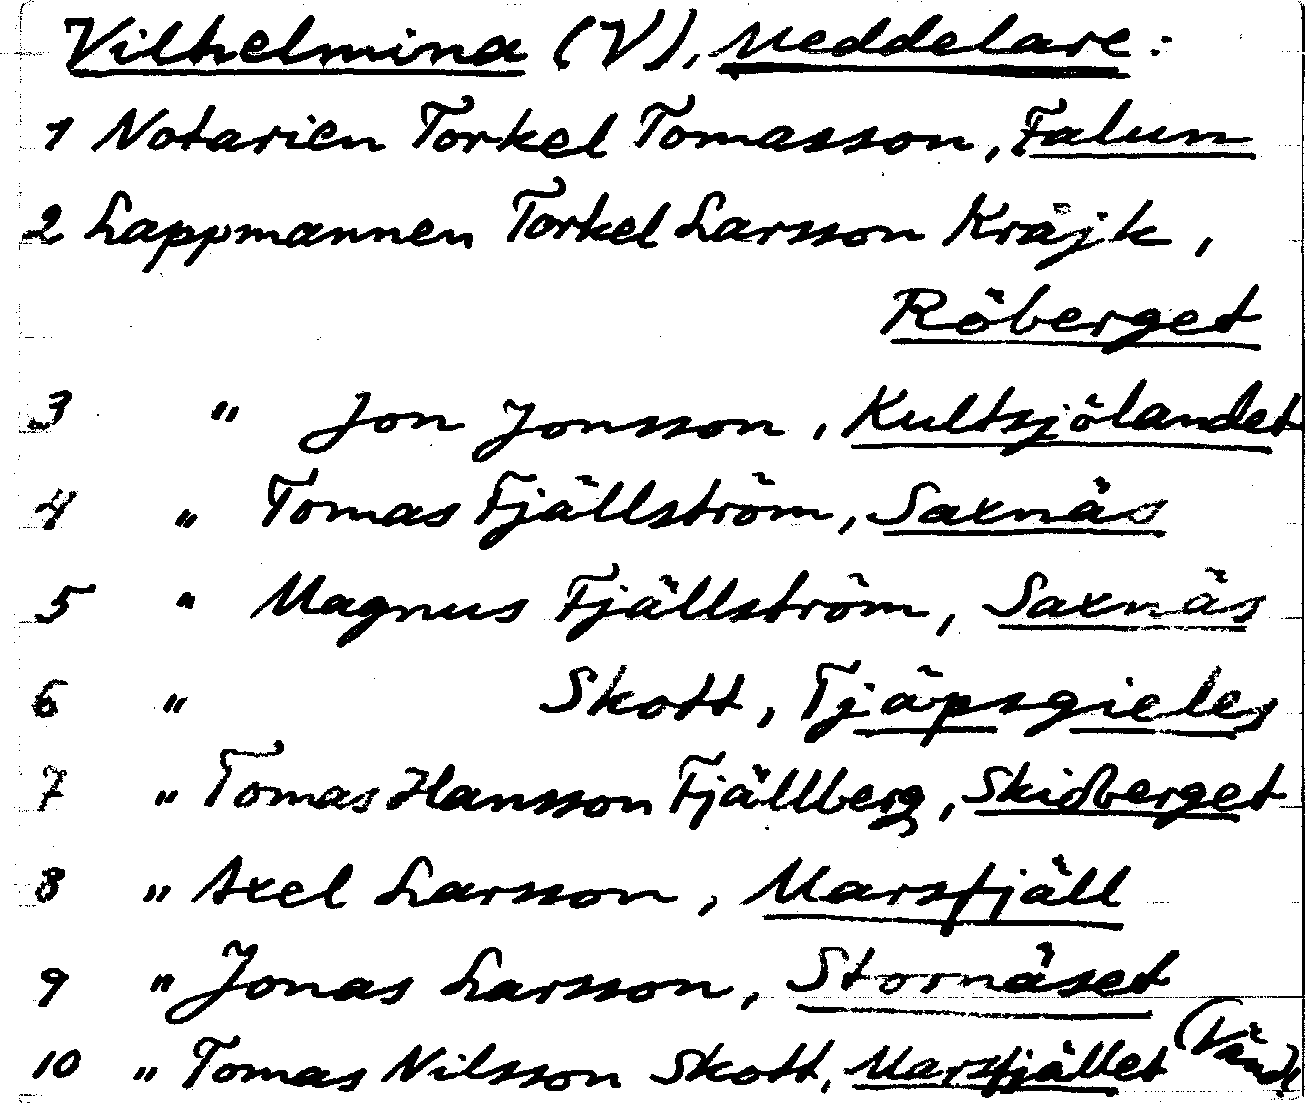 Vilhelmina (V), Meddelare:
1 Notarien Torkel Tomasson, Falun
2 Lappmannen Torkel Larsson Kråjk,
Röberget
3 " Jon Jonsson, Kultsjölandet
4 " Tomas Fjällström, Saxnäs
5 " Magnus Fjällström, Saxnäs
6 " Skott, Tjäpsgieles
7 " Tomas Hansson Fjällberg, Skidberget
8 " Axel Larsson, Marsfjäll
9 " Jonas Larsson, Stornäset
10 " Tomas Nilsson Skott, Marsfjället (Vänd